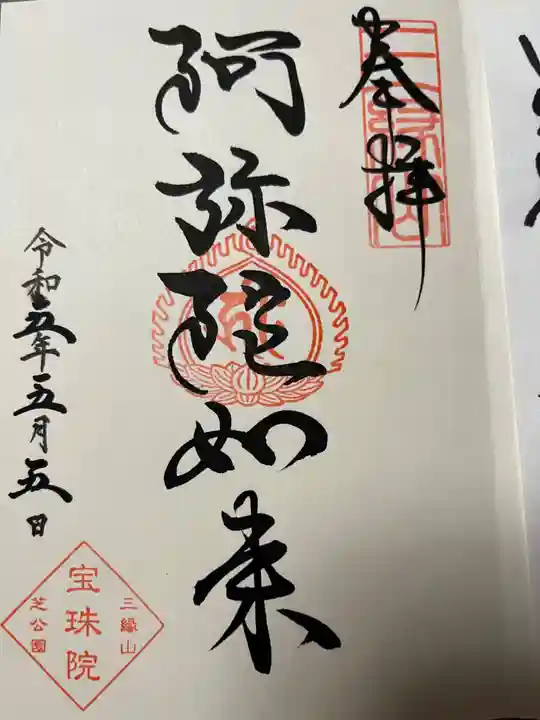 奉拝
三縁山
阿弥陀如来
令和五年五月五日
三縁山
宝珠院
芝公園